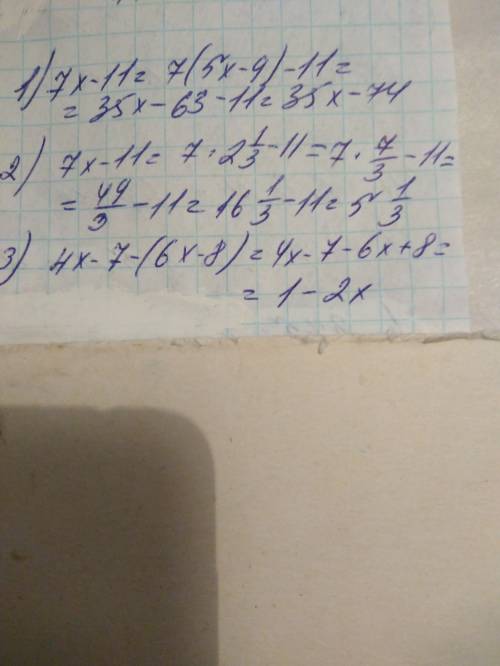 1) 7x-11= 7(5x-9)-11=
= 35x-63-11=35x-74
2) 7x-11= 7·2 1/3-11=7·7/3-11=
= 49/3-11=16 1/3-11=5 1/3
3) 4x-7-(6x-8)=4x-7-6x+8=
= 1-2x